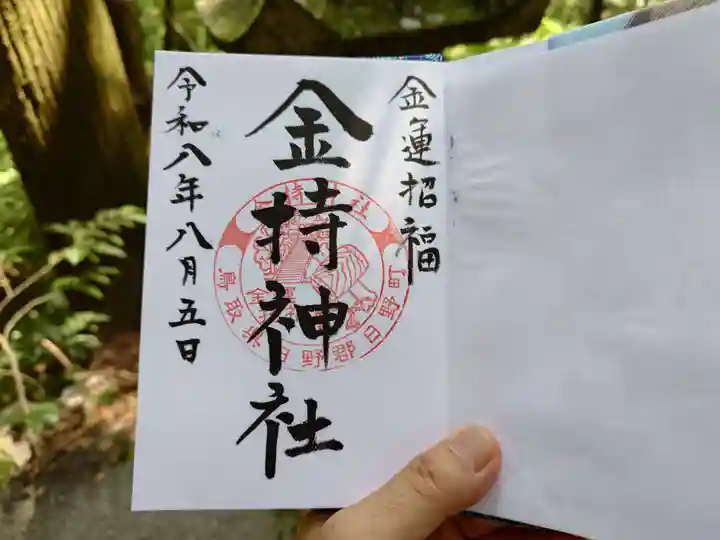 金運招福
金持神社
令和八年八月五日
鳥取県日野郡日野町